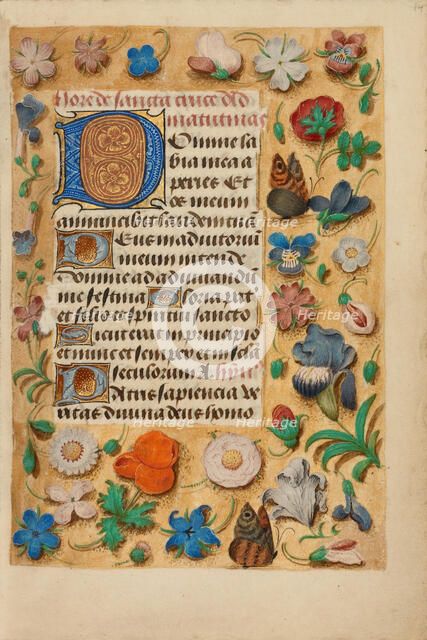 Hore de sancta cruce Ad
matutinas
Domine la
bia mea a
peries Et
os meum
annunciabit laudem tuam
Deus in adiutoriū
meum intende
Domine ad adiuuandū
me festina Gloria patri
et filio et spiritui sancto
Sicut erat in principio
et nunc et semper et in secula
seculorum A. hymꝰ
Patris sapiencia ve
ritas diuina deus homo
Heritage
Heritage
Heritage
Heritage